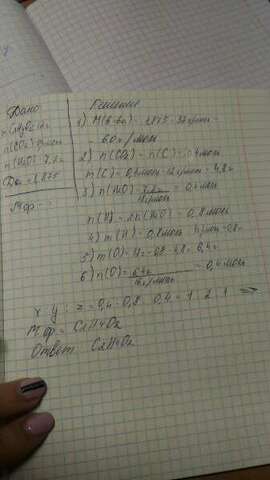 Дано
m(CxHyOz)
n(CO2)
m(H2O) 7,2
D 1,875
М.ф - ?
Решение
1) M(в-ва) = 1,875 · 32 г/моль =
= 60 г/моль
2) n(CO2) = n(C) = 0,4 моль
m(C) = 0,4 моль · 12 г/моль = 4,8 г
3) n(H2O) = 7,2 г / 18 г/моль = 0,4 моль
n(H) = 2n(H2O) = 0,8 моль
4) m(H) = 0,8 моль · 1 г/моль = 0,8 г
5) m(O) = 12 - 0,8 - 4,8 = 6,4 г
6) n(O) = 6,4 г / 16 г/моль = 0,4 моль
x : y : z = 0,4 : 0,8 : 0,4 = 1 : 2 : 1 =>
М.ф = C2H4O2
Ответ: C2H4O2